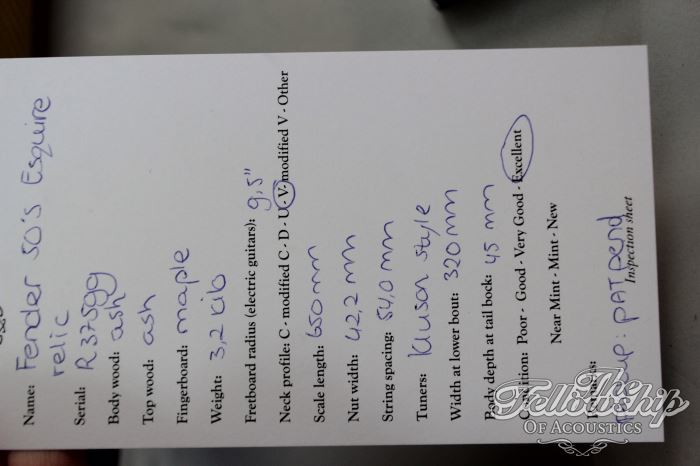 Name: Fender 50's Esquire
relic
Serial: R37599
Body wood: ash
Top wood: ash
Fingerboard: maple
Weight: 3,2 kilo
Fretboard radius (electric guitars): 9,5"
Neck profile: C - modified C - D - U - V - modified V - Other
Scale length: 650 mm
Nut width: 42,2 mm
String spacing: 54,0 mm
Tuners: Kluson style
Width at lower bout: 320 mm
Body depth at tail bock: 45 mm
Condition: Poor - Good - Very Good - Excellent
Near Mint - Mint - New
pick up: PAT.pend
Inspection sheet
The
Fellowship
Of Acoustics